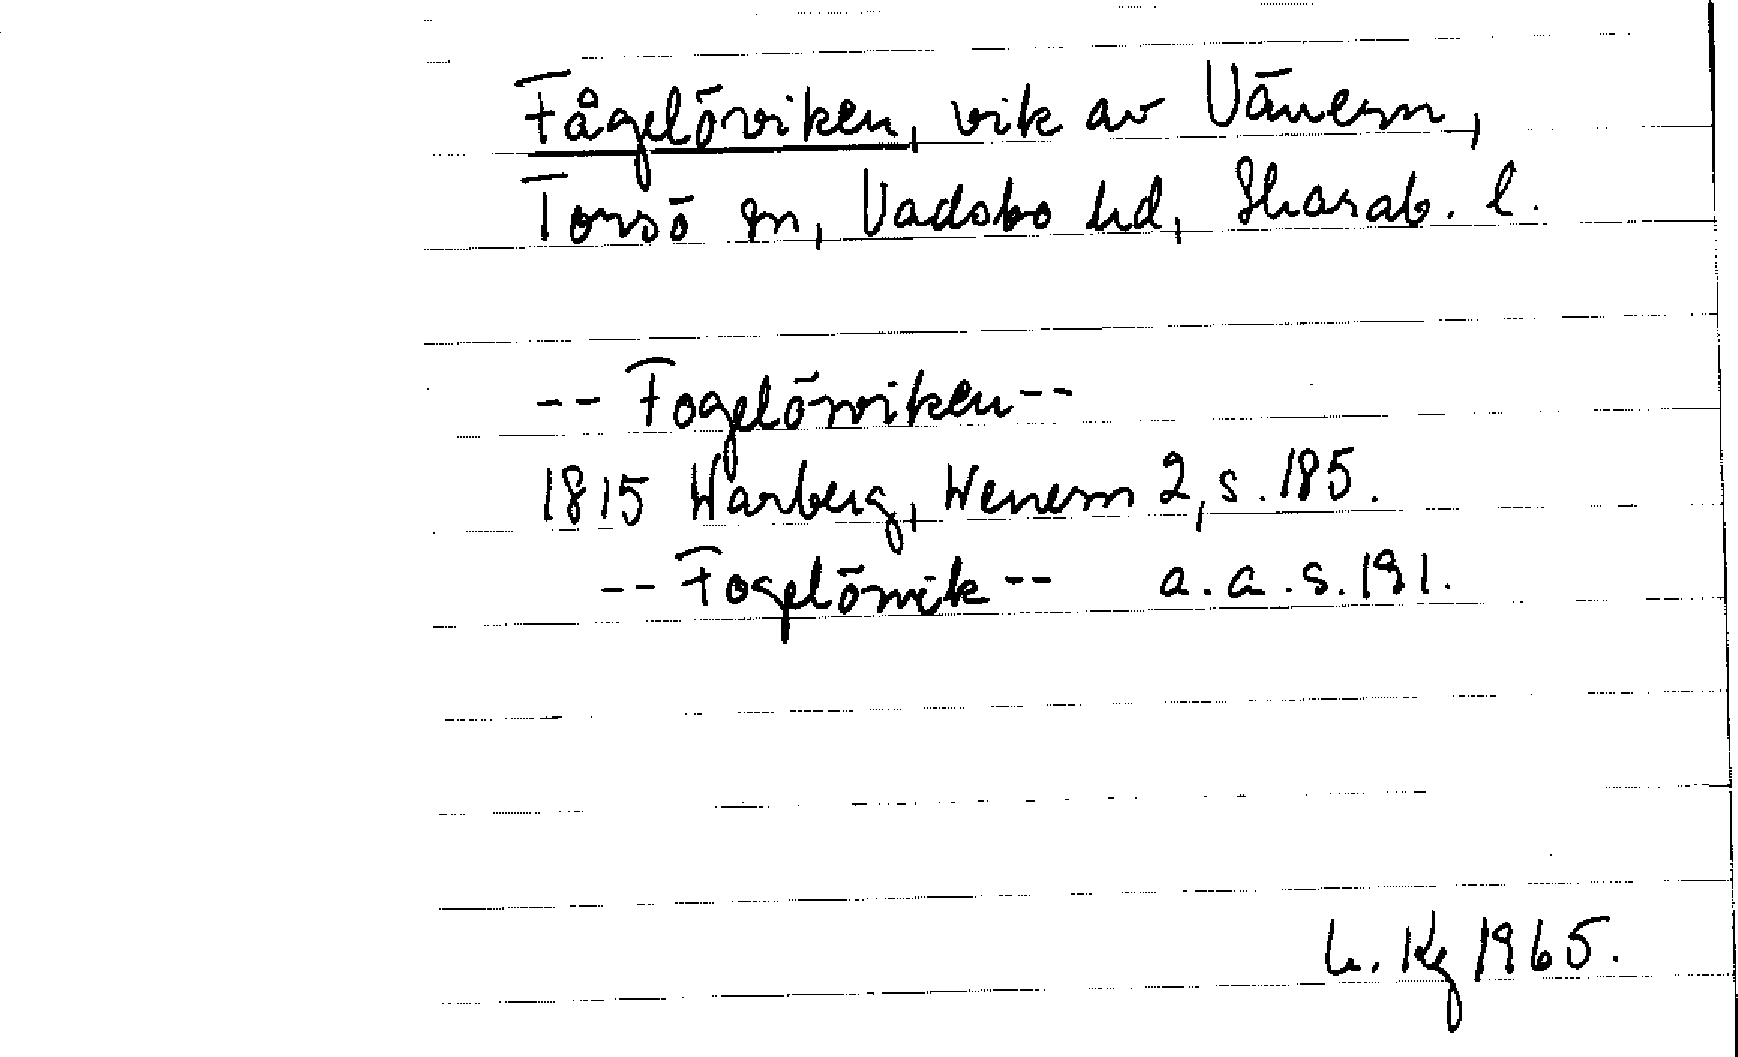 Fågelöviken, vik av Vänern,
Torsö sn, Vadsbo hd, Skarab. l.
-- Fogelöwiken --
1815 Warberg, Wenern 2, s. 185.
-- Fogelöwik -- a. a. s. 191.
L. Kg 1965.